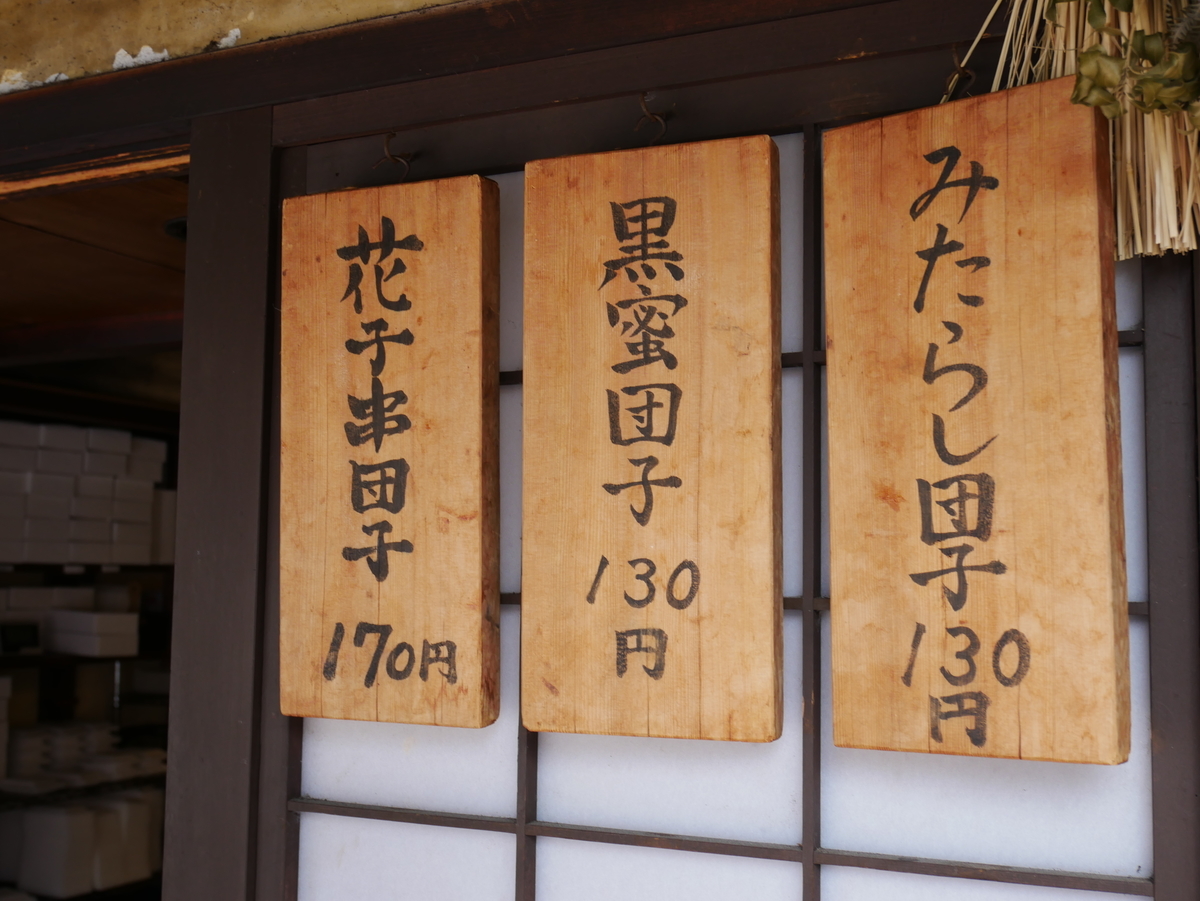 みたらし団子
130
円
黒蜜団子
130
円
花子串団子
170円